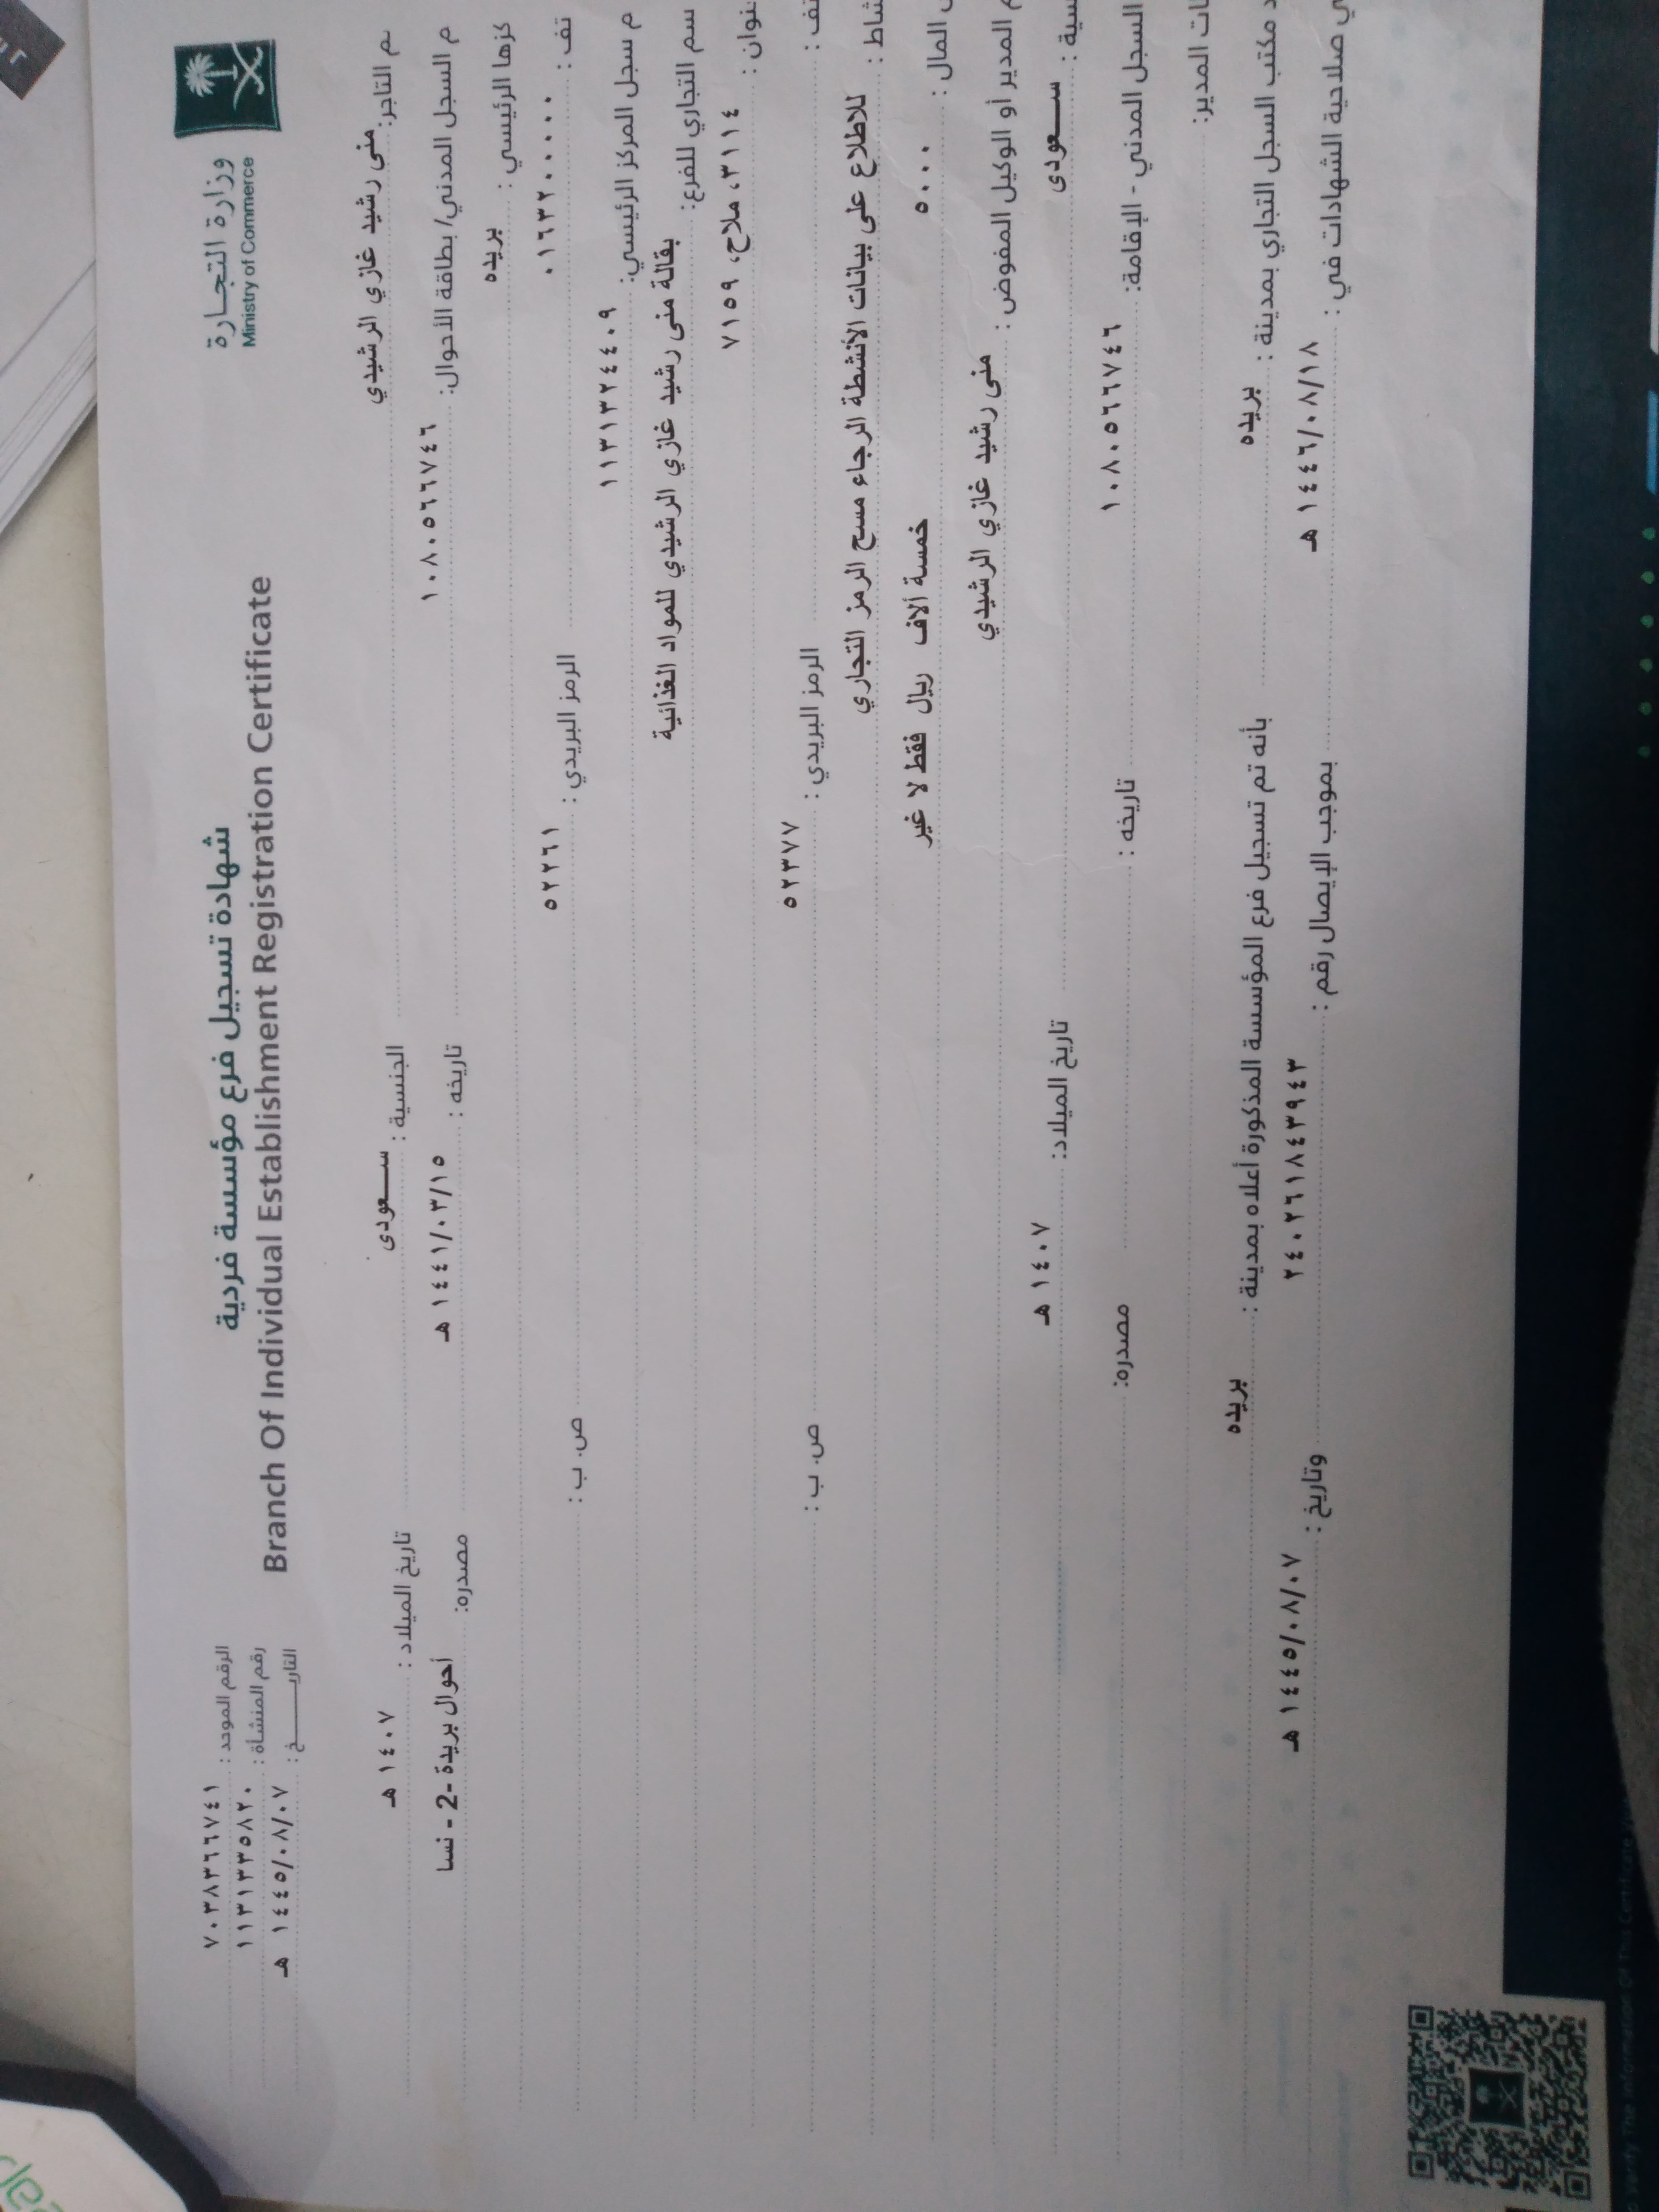 وزارة التجـارة
Ministry of Commerce
شهادة تسجيل فرع مؤسسة فردية
Branch Of Individual Establishment Registration Certificate
الرقم الموحد : ٧٠٣٨٣٦٦٧٤١
رقم المنشأة : ١١٣١٣٣٥٨٢٠
التاريـــــــخ : ١٤٤٥/٠٨/٠٧ هـ
التاجر: منى رشيد غازي الرشيدي الجنسية : ســـعودى تاريخ الميلاد : ١٤٠٧ هـ
السجل المدني/ بطاقة الأحوال: ١٠٨٠٥٦٦٧٤٦ تاريخه : ١٤٤١/٠٣/١٥ هـ مصدره: أحوال بريدة -2 - نسا
الرئيسي : بريده
٠١٦٣٢٠٠٠٠٠ الرمز البريدي : ٥٢٢٦١ ص. ب :
سجل المركز الرئيسي: ١١٣١٣٢٤٤٠٩
سم التجاري للفرع: بقالة منى رشيد غازي الرشيدي للمواد الغذائية
٣١١٤، ملاح، ٧١٥٩
الرمز البريدي : ٥٢٣٧٧ ص. ب :
للاطلاع على بيانات الأنشطة الرجاء مسح الرمز التجاري
المال : ٥٠٠٠ خمسة ألاف ريال فقط لا غير
المدير أو الوكيل المفوض : منى رشيد غازي الرشيدي
ســـعودى تاريخ الميلاد: ١٤٠٧ هـ
السجل المدني - الإقامة: ١٠٨٠٥٦٦٧٤٦ تاريخه : مصدره:
المدير:
مكتب السجل التجاري بمدينة : بريده بأنه تم تسجيل فرع المؤسسة المذكورة أعلاه بمدينة : بريده
صلاحية الشهادات في : ١٤٤٦/٠٨/١٨ هـ بموجب الإيصال رقم : ٢٤٠٢٦١٨٤٣٩٤٣ وتاريخ : ١٤٤٥/٠٨/٠٧ هـ
The Information Of This Certificate